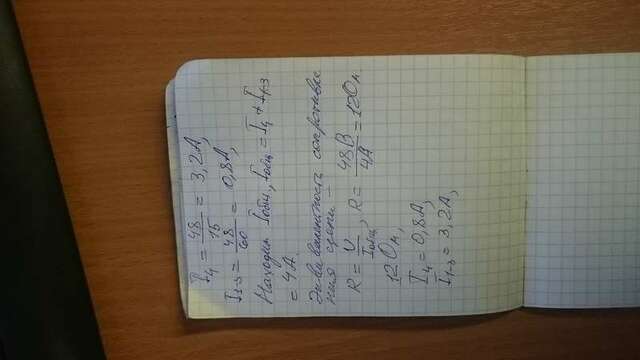 I₄ = 48/15 = 3,2А,
I₁₋₃ = 48/60 = 0,8А,
Находим Iобщ., Iобщ = I₄ + I₁₋₃
= 4А.
Эквивалентность сопротивле
ния цепи –
R = U/Iобщ, R = 48В/4А = 12Ом
12Ом,
I₄ = 0,8А,
I₁₋₃ = 3,2А,